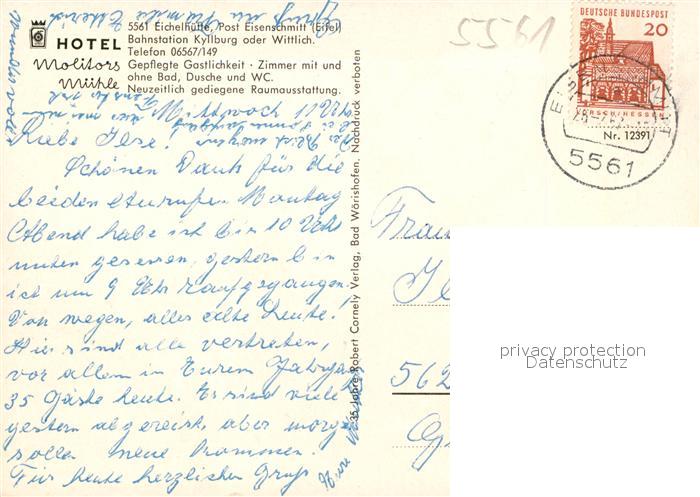 HOTEL
Molitors
Mühle
5561 Eichelhütte, Post Eisenschmitt (Eifel)
Bahnstation Kyllburg oder Wittlich.
Telefon 06567/149
Gepflegte Gastlichkeit · Zimmer mit und
ohne Bad, Dusche und WC.
Neuzeitlich gediegene Raumausstattung.
5561
DEUTSCHE BUNDESPOST
20
LORSCH/HESSEN
Nr. 12391
5561
Mittwoch 11 Uhr
Liebe Ilse!
Schönen Dank für die
beiden Montag
Abend habe ich bis 10 Uhr
unten gesessen, gestern bin
ich um 9 Uhr raufgegangen.
Von wegen, alles alte Leute!
Hier sind alle vertreten,
vor allem in Eurem Jahrgan
35 Gäste heute. Es sind viele
gestern abgereist, aber morgen
sollen neue kommen.
Für heute herzlichen Gruß
35 Jahre Robert Cornely Verlag, Bad Wörishofen, Nachdruck verboten
Frau
562
privacy protection
Datenschutz